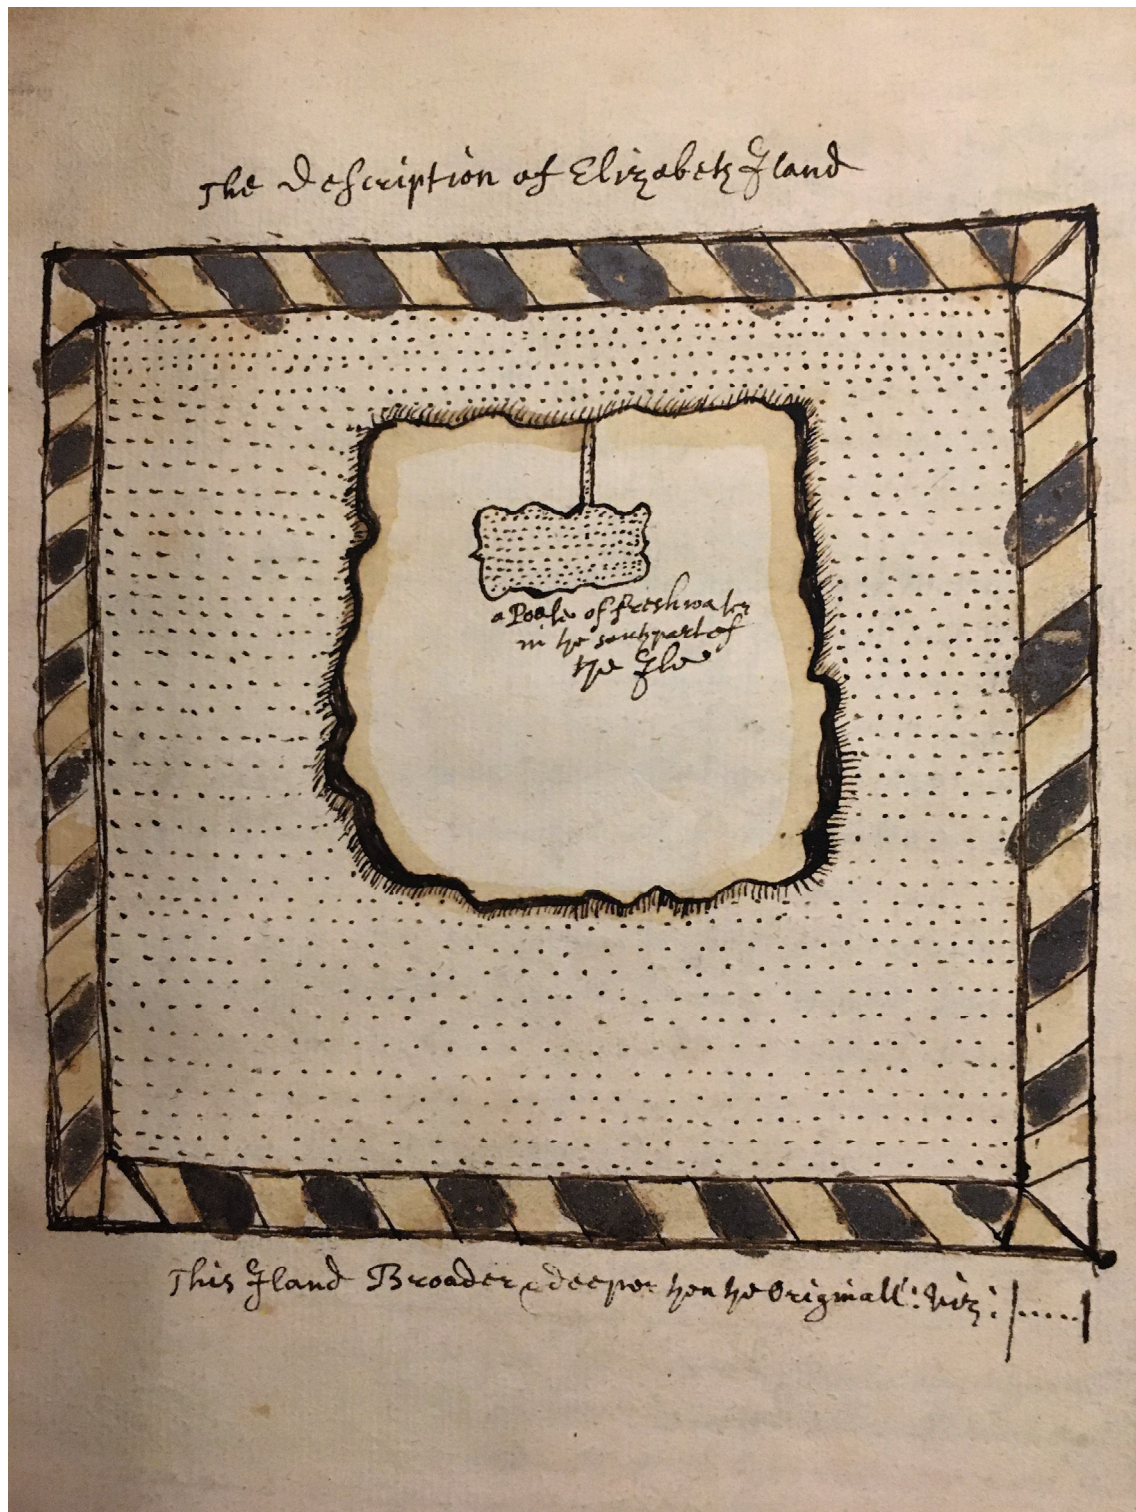 The Description of Elizabeth Iland
a Poole of freshwater
in the south part of
the Ile
This Iland Broader & deeper then the Originall: Viz: